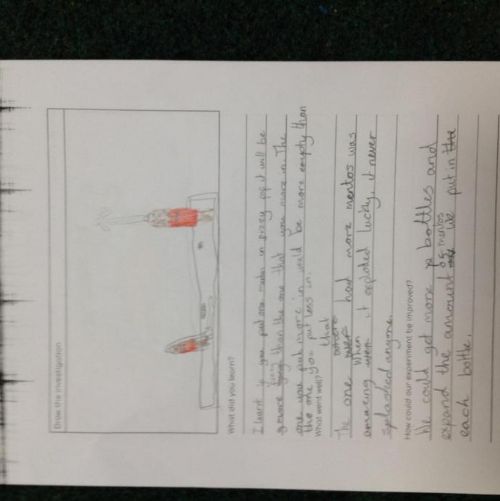 Draw the investigation
What did you learn?
I learnt if you put one in fizzy pop it will be
than the one that you more in. The
one you put more in would be more empty than
the one you put less in.
What went well?
The one that had more mentos was
amazing when it exploded luckly, it never
splashed anyone.
How could our experiment be improved?
We could get more bottles and
expand the amount of mentos we put in
each bottle.